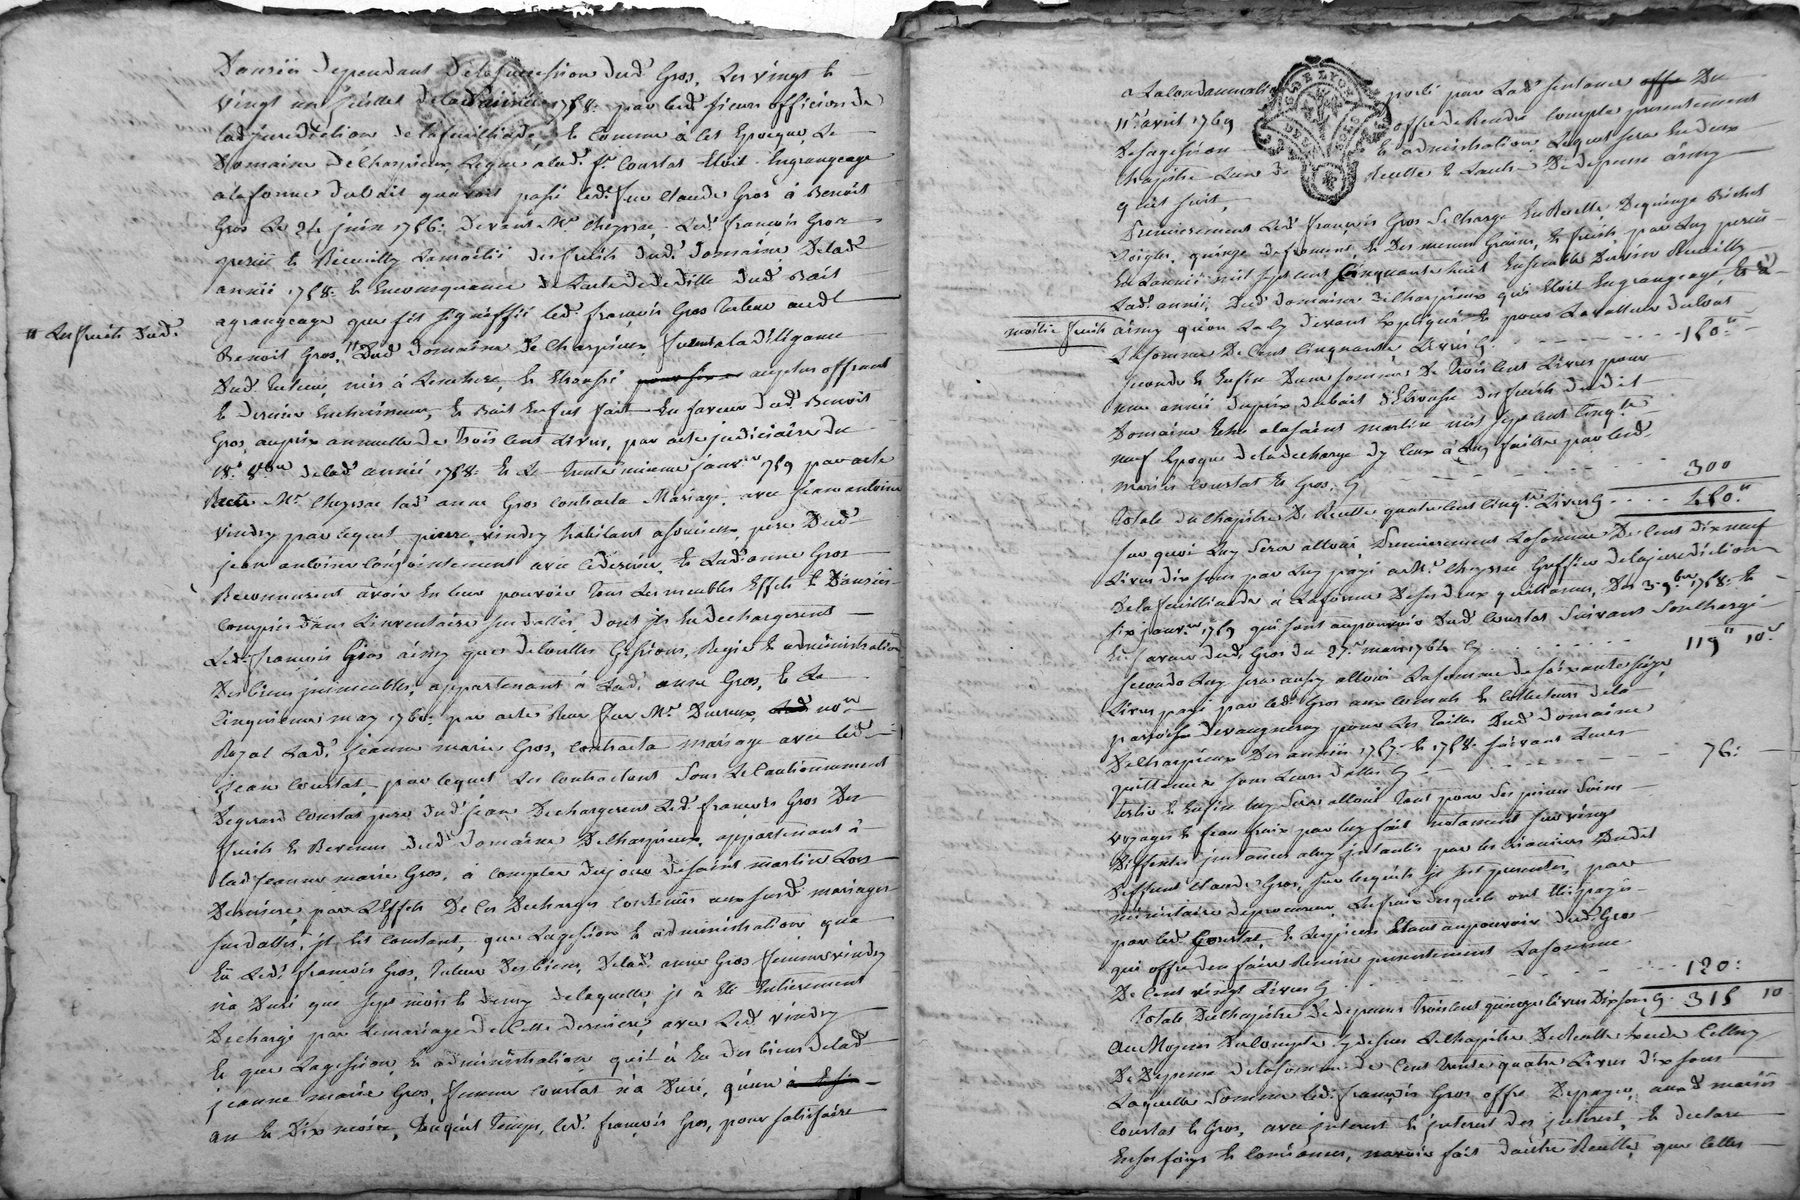 Danrées dependant de la succession dud. Gros, Les vingt et
vingt un juillet de lad. année 1758. par led. sieurs officiers de
lad. juridiction de lafeuilliade, et comme à cet Epoque, Le
Domaine de Charpieux, legué à lad. fe. Coustat Etoit Engrangeage
a la forme du bail qu'avoit passé led. feu Claude Gros à Benoit
Gros Le 24 juin 1756. devant Me. Cheyssac, Led. françois Gros
perçu et Recueilly la moitié des fruits dud. Domaine de lad.
année 1758. et En consequence de l'acte de deditte dud. Bail
a grangeage que fit signiffié led. françois Gros tuteur aud.
" Les fruits dud.
Benoit Gros, " dud. Domaine de Charpieux, furent a la diligence
dud. tuteur, mis à L'enchere, et Etroussé au plus offrant
et dernier Encherisseur, et Bail En fut fait En faveur dud. Benoit
Gros, au prix annuelle de trois cent Livres, par acte judiciaire du
18e. 8bre de lad. année 1758. Et le trente unieme janvr. 1759 par acte
Reçu Me. Cheyssac lad. anne Gros contracta Mariage avec jean antoine
vindry par lequel pierre vindry habitant a Soucieux, pere dud.
jean antoine conjointement avec ce dernier, et Lad. anne Gros
Reconnurent avoir En leur pouvoir tous Les meubles Effets et Danrées
compris dans L'inventaire susdatté dont ils En dechargerent
Led. françois Gros ainsy que de toutes Gestions, Regie et administration
des biens immeubles, appartenant à Lad. anne Gros, Et Le
cinquieme may 1760. par acte Reçu par Me. Ducreux, nore
Royal Lad. jeanne marie Gros, contracta mariage avec led.
jean Coustat, par lequel Les contractant sous Le Cautionnement
de gerard Coustat pere dud. jean dechargerent Led. françois Gros des
fruits et Revenus dud. Domaine de Charpieux, appartenant à
lad. jeanne marie Gros, à compter du jour de saint martin Lors
derniere, par L'Effet de ces decharges contenües aux susd. mariages
susdattés, il est constant, que La gestion et administration que
Eu Led. françois Gros, tuteur des biens, de lad. anne Gros femme vindry
n'a duré que sept mois et demy de laquelle, il a Eté Entierement
dechargé par Le mariage de cette derniere, avec Led. vindry
Et que La gestion, et administration qu'il à Eu des biens de lad.
jeanne marie Gros, femme Coustat n'a duré, qu'un
an Et Dix mois, Duquel Temps, led. françois Gros, pour satisfaire
a La condamnation portée par Lad. sentence du
11e. avril 1769 offre de Rendre compte presentement
de sa gestion et administration Lequel sera En deux
chapitre L'un de Recette et L'autre de depense ainsy
q'uil suit,
Premierement Led. françois Gros se charge En Recette de quinze Bichet
soigles, quinze de froment, et des menus Grains, et fruits par Luy perçu
En L'année mil sept cent Cinquante huit Ensemble du vin Recueilly
Lad. année, dud. Domaine de Charpieux qui Etoit Engrangeage, et à
moitié fruits
ainsy qu'on La cy devant Expliqué pour La valleur du tout
La somme de Cent Cinquante Livres Cy 150 "
seconde et Enfin d'une somme de trois cent Livres pour
une année du prix du bail d'Etrousse des fruits dudit
Domaine Echu a la saint martin mil sept cent Cinqte.
neuf Epoque de la decharge dy ceux à Luy faitte par led.
mariés Coustat et Gros, Cy 300
Totale du Chapitre de Recette quatre cent Cinqte. Livres Cy 450 "
sur quoi Luy sera alloué, Premierement La somme de Cent dix neuf
Livres dix sous par Luy payé audt. Cheyssac Greffier de la juridiction
de la feuilliade à La forme de ses deux quittances, des 3 9bre 1758. Et
six janvr. 1759 qui sont au pouvoir dud. Coustat suivant son chargé
En faveur dud. Gros du 27e. mars 1764 Cy 119 " 10 s.
seconde Luy sera aussy alloué La somme de soixante seize
Livres payé par led. Gros aux consuls et collecteurs de la
paroisse de vaugneray pour Les tailles dud. Domaine
de Charpieux des années 1757. Et 1758. suivant Leurs
quittances sous Leurs dattes Cy 76:
Tertio et Enfin Luy sera alloué tant pour ses peines soins
voyages et faux fraix par luy fait notament sur vingt
differentes instances a luy intentés par les Créanciers dudit
deffunt Claude Gros, sur lesquels il s'est presenté, par
ministaire de procureur, Les fraix desquels ont Eté payés
par led. Coustat, Et Les pieces Etant au pouvoir dud. Gros
qui offre d'en faire Remise presentement La somme
de Cent vingt Livres Cy 120:
Totale du Chapitre de depense trois cent quinze livres dix sous Cy 315 10
Au Moyen du Compte cy dessus Le Chapitre de Recette Excede Celluy
de Depense de la somme de Cent trente quatre Livres dix sous
Laquelle Somme led. françois Gros offre de payer, auxd. mariés
Coustat et Gros, avec interest Et interest des interest, Et declare
En ses foys et Consience, n'avoir fait d'autre Recette, que Celles